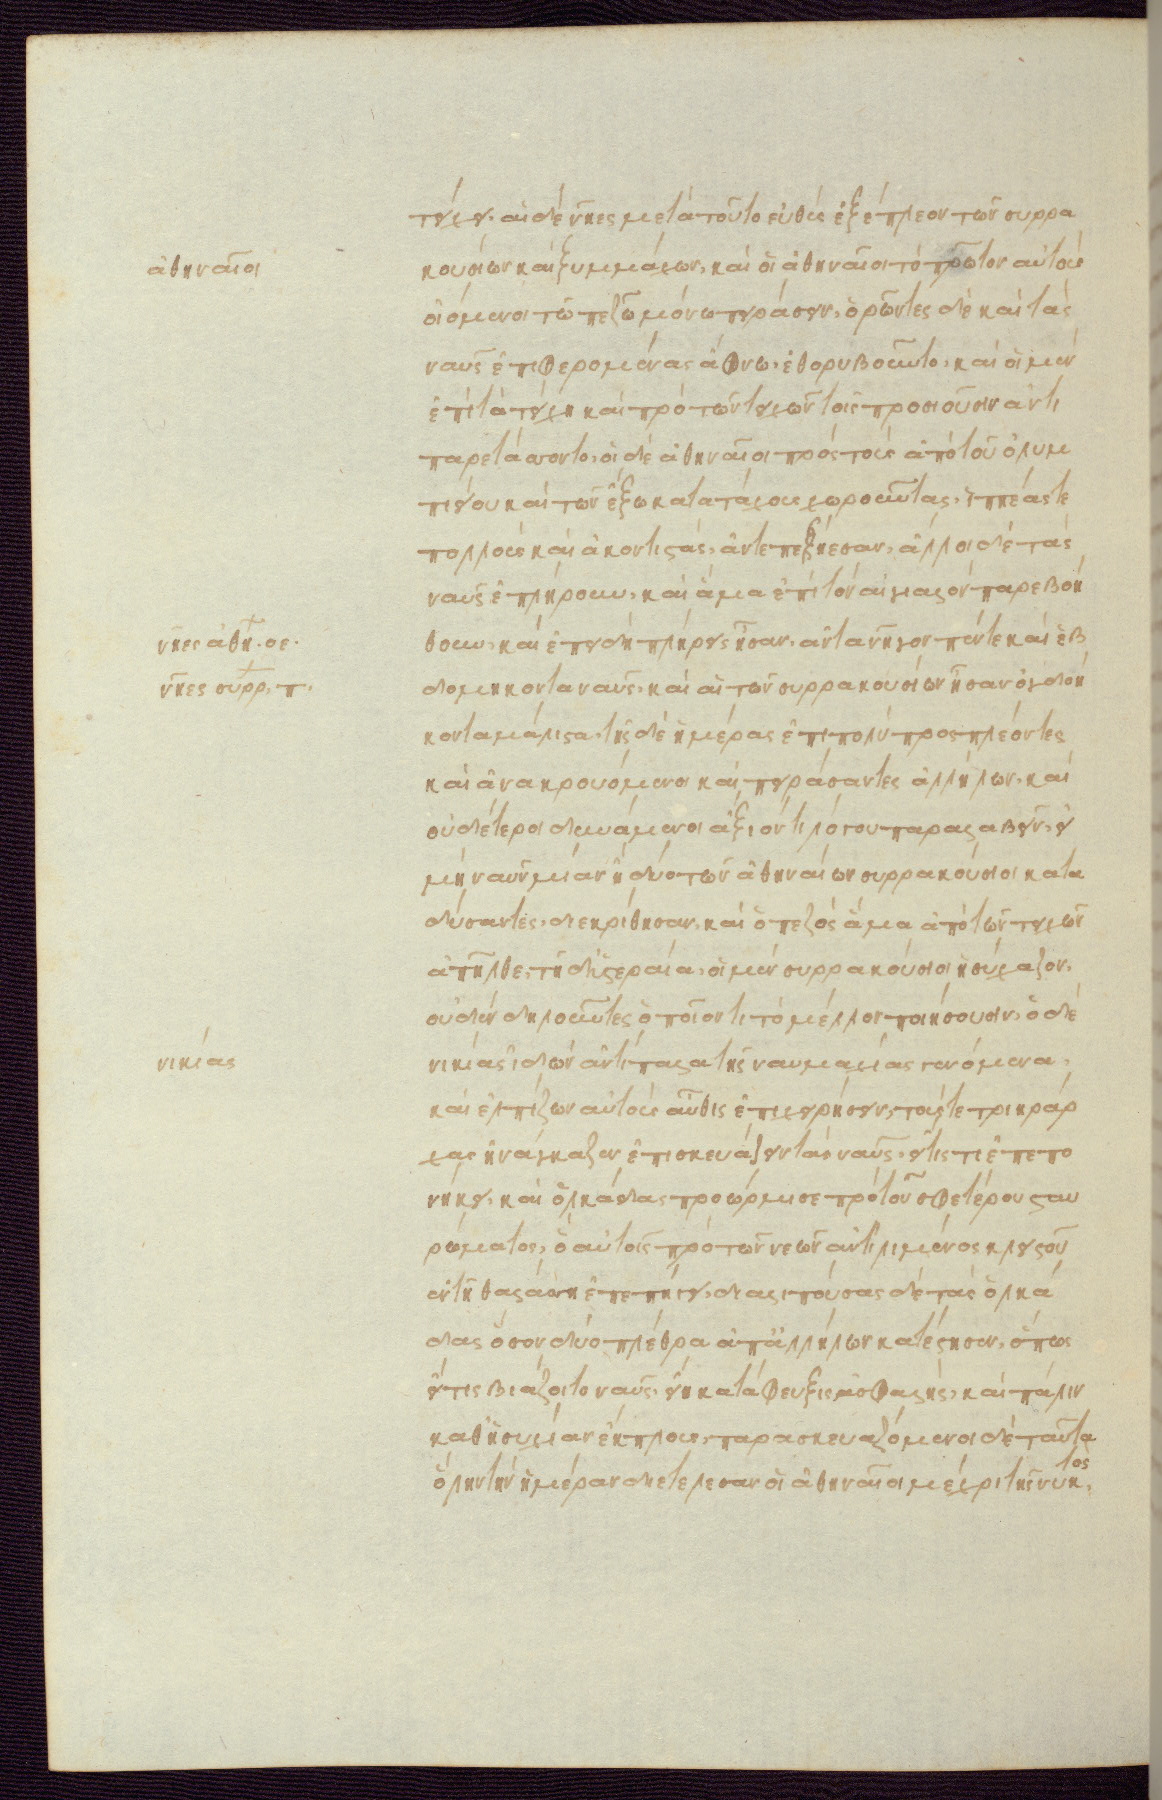 τείχει. αἱ δὲ νῆες μετὰ τοῦτο εὐθὺς ἐξέπλεον τῶν συρρα
ἀθηναῖοι
κουσίων καὶ ξυμμάχων, καὶ οἱ ἀθηναῖοι τὸ πρῶτον αὐτοὺς
οἰόμενοι τῶ πεζῶ μόνω πειράσειν, ὁρῶντες δὲ καὶ τὰς
ναῦς ἐπιφερομένας ἄφνω, ἐθορυβοῦντο, καὶ οἱ μὲν
ἐπὶ τὰ τείχη καὶ πρὸ τῶν τειχῶν τοῖς προσιοῦσιν ἀντι
παρετάσσοντο, οἱ δὲ ἀθηναῖοι πρὸς τοὺς ἀπὸ τοῦ ὀλυμ
πιείου καὶ τῶν ἔξω κατὰ τάχους χωροῦντας, ἱππέας τε
πολλοὺς καὶ ἀκοντιστὰς, ἀντεπεξῄεσαν, ἄλλοι δὲ τὰς
ναῦς ἐπλήρουν, καὶ ἅμα ἐπὶ τὸν αἰγιαλὸν παρεβοή
νῆες ἀθη. οε.
θουν, καὶ ἐπειδὴ πλήρεις ἦσαν, ἀντανῆγον πέντε καὶ ἑβ
νῆες συρρ. π.
δομήκοντα ναῦς, καὶ αἱ τῶν συρρακουσίων ἦσαν ὀγδοή
κοντα μάλιστα, τῆς δὲ ἡμέρας ἐπιπολὺ προσπλέοντες
καὶ ἀνακρουόμενοι καὶ πειράσαντες ἀλλήλων, καὶ
οὐδέτεροι δυνάμενοι ἄξιόν τι λόγου παραλαβεῖν, εἰ
μὴ ναῦν μίαν ἢ δύο τῶν ἀθηναίων συρρακούσιοι κατα
δύσαντες, διεκρίθησαν, καὶ ὁ πεζὸς ἅμα ἀπὸ τῶν τειχῶν
ἀπῆλθε, τῇ δ' ὑστεραία, οἱ μὲν συρρακούσιοι ἡσύχαζον,
οὐδὲν δηλοῦντες ὁποῖόν τι τὸ μέλλον ποιήσουσιν, ὁ δὲ
νικίας
νικίας ἰδὼν ἀντίπαλα τῆς ναυμαχίας γενόμενα,
καὶ ἐλπίζων αὐτοὺς αὖθις ἐπιχειρήσειν, τούς τε τριηράρ
χας ἠνάγκαζεν ἐπισκευάζειν τὰς ναῦς, εἴ τίς τι ἐπεπο
νήκει, καὶ ὁλκάδας προώρμισε πρὸ τοῦ σφετέρου σταυ
ρώματος, ὃ αὐτοῖς πρὸ τῶν νεῶν ἀντὶ λιμένος κλειστοῦ
ἐν τῇ θαλάσσῃ ἐπεπήγει, διαλιπούσας δὲ τὰς ὁλκά
δας ὅσον δύο πλέθρα ἀπ' ἀλλήλων κατέστησεν, ὅπως
εἴ τις βιάζοιτο ναῦς, εἴη κατάφευξις ἀσφαλὴς, καὶ πάλιν
καθ' ἡσυχίαν ἔκπλους, παρασκευαζόμενοι δὲ ταῦτα
ὅλην τὴν ἡμέραν διετέλεσαν οἱ ἀθηναῖοι μέχρι τῆς νυκτός,